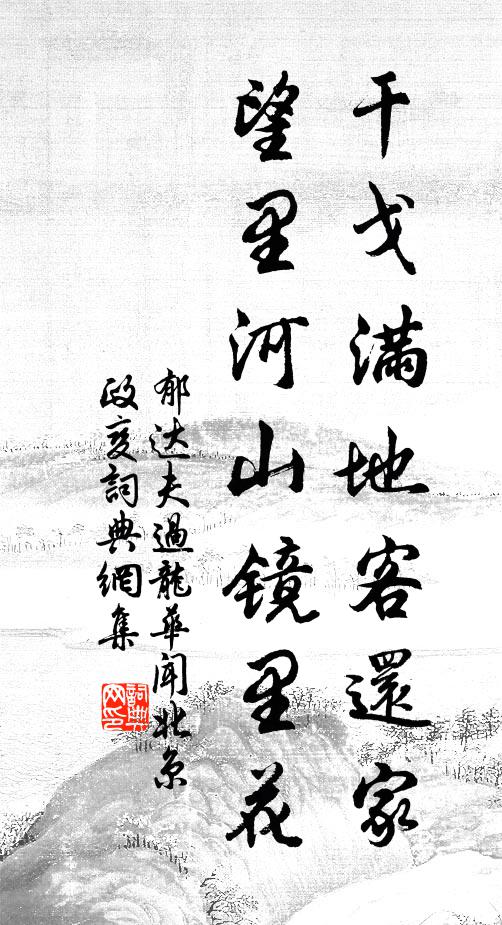 干戈滿地客還家
望里河山镜里花
郁达夫過龍華闻北京
政变詞典網集
詞典
网印